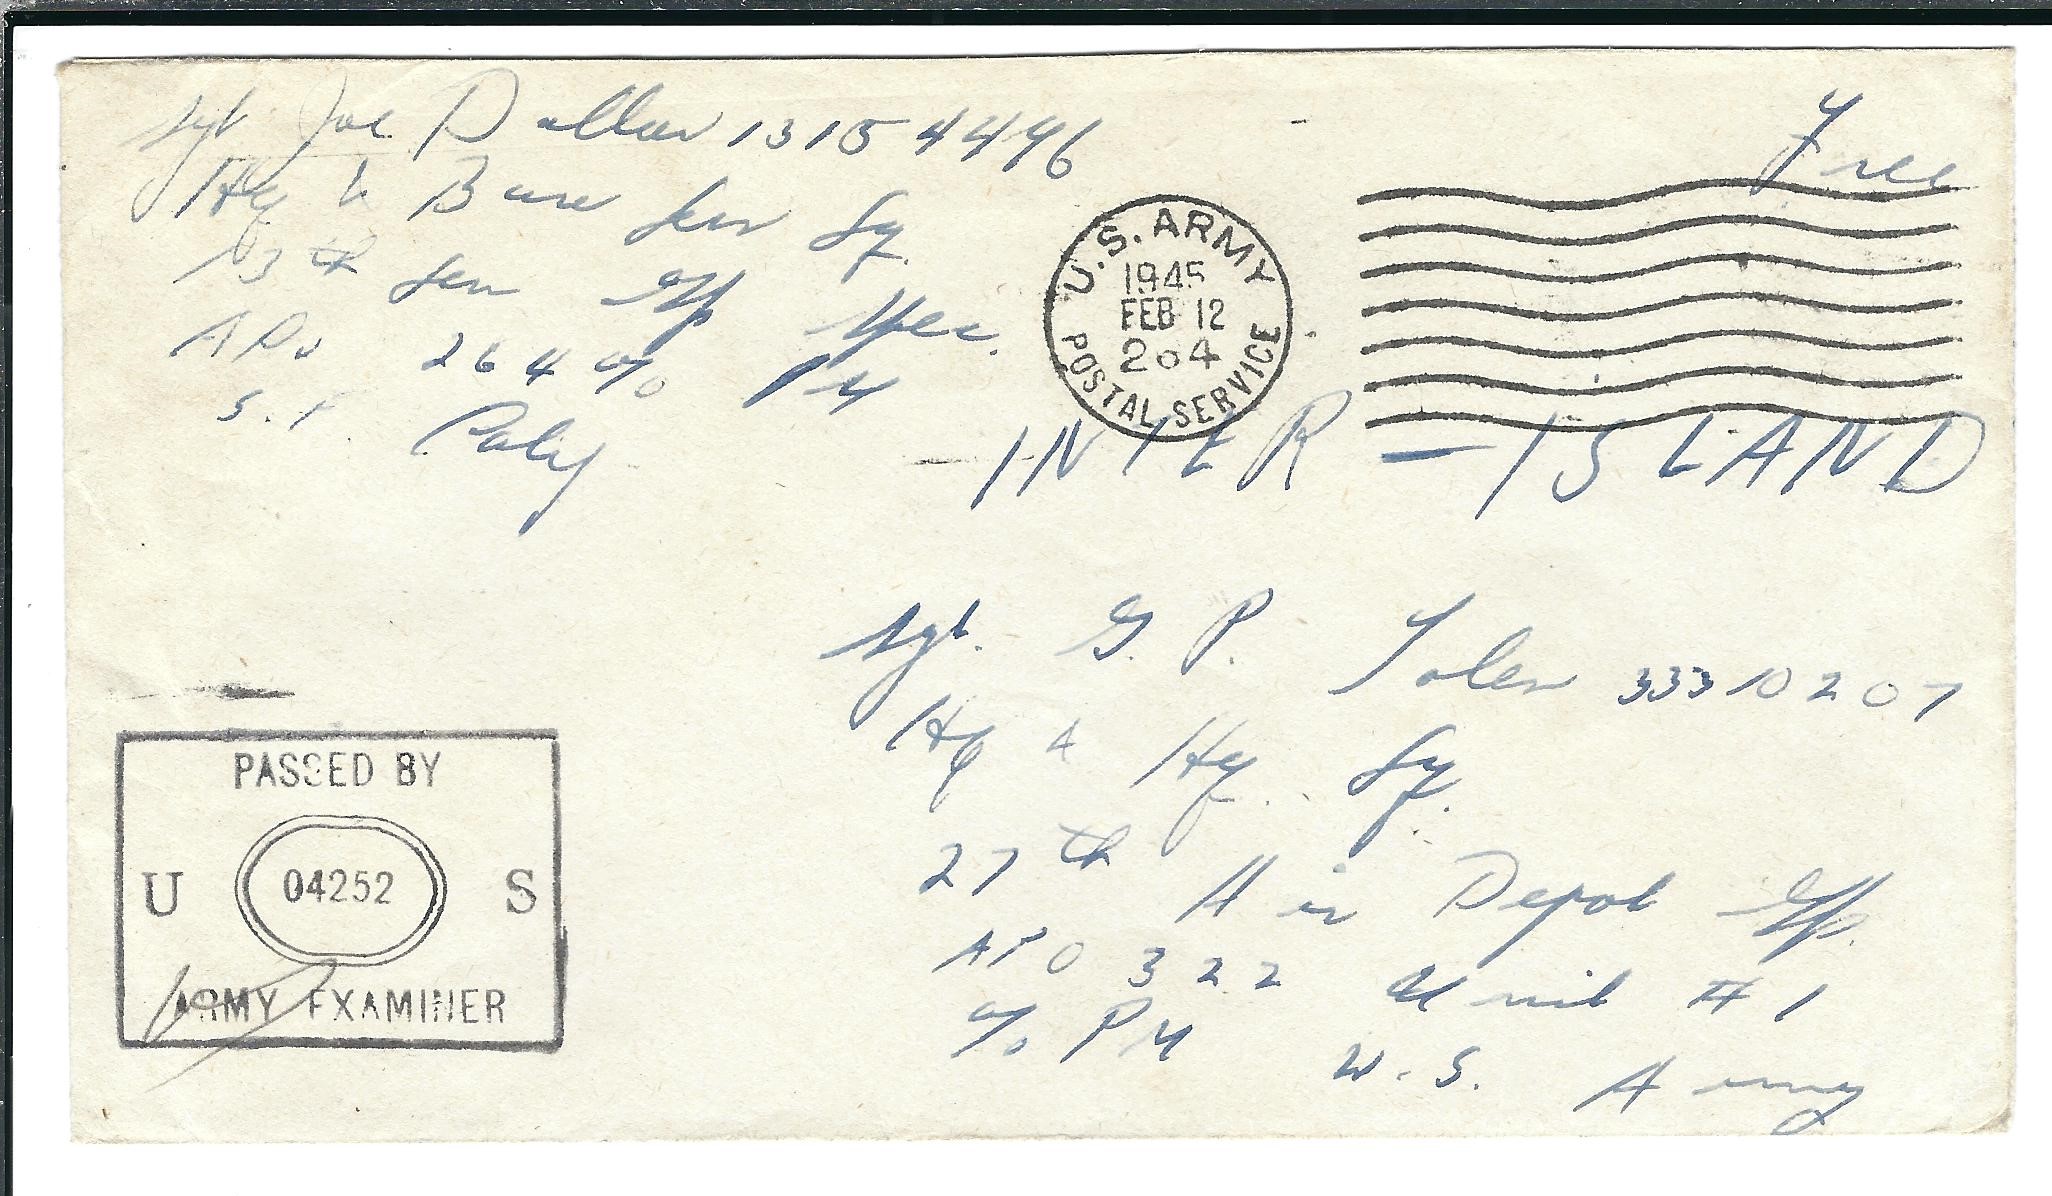 Sgt Joe Dallas 13154446
Hq & Base Serv Sq.
13th Serv Gp
APO 264 c/o PM
S.F. Calif
Free
U.S. ARMY
1945
FEB 12
204
POSTAL SERVICE
INTER - ISLAND
Sgt. G. P. Tolen 33310207
Hq & Hq. Sq.
27th Air Depot Gp.
APO 322 Unit # 1
c/o PM U.S. Army
PASSED BY
U 04252 S
ARMY EXAMINER